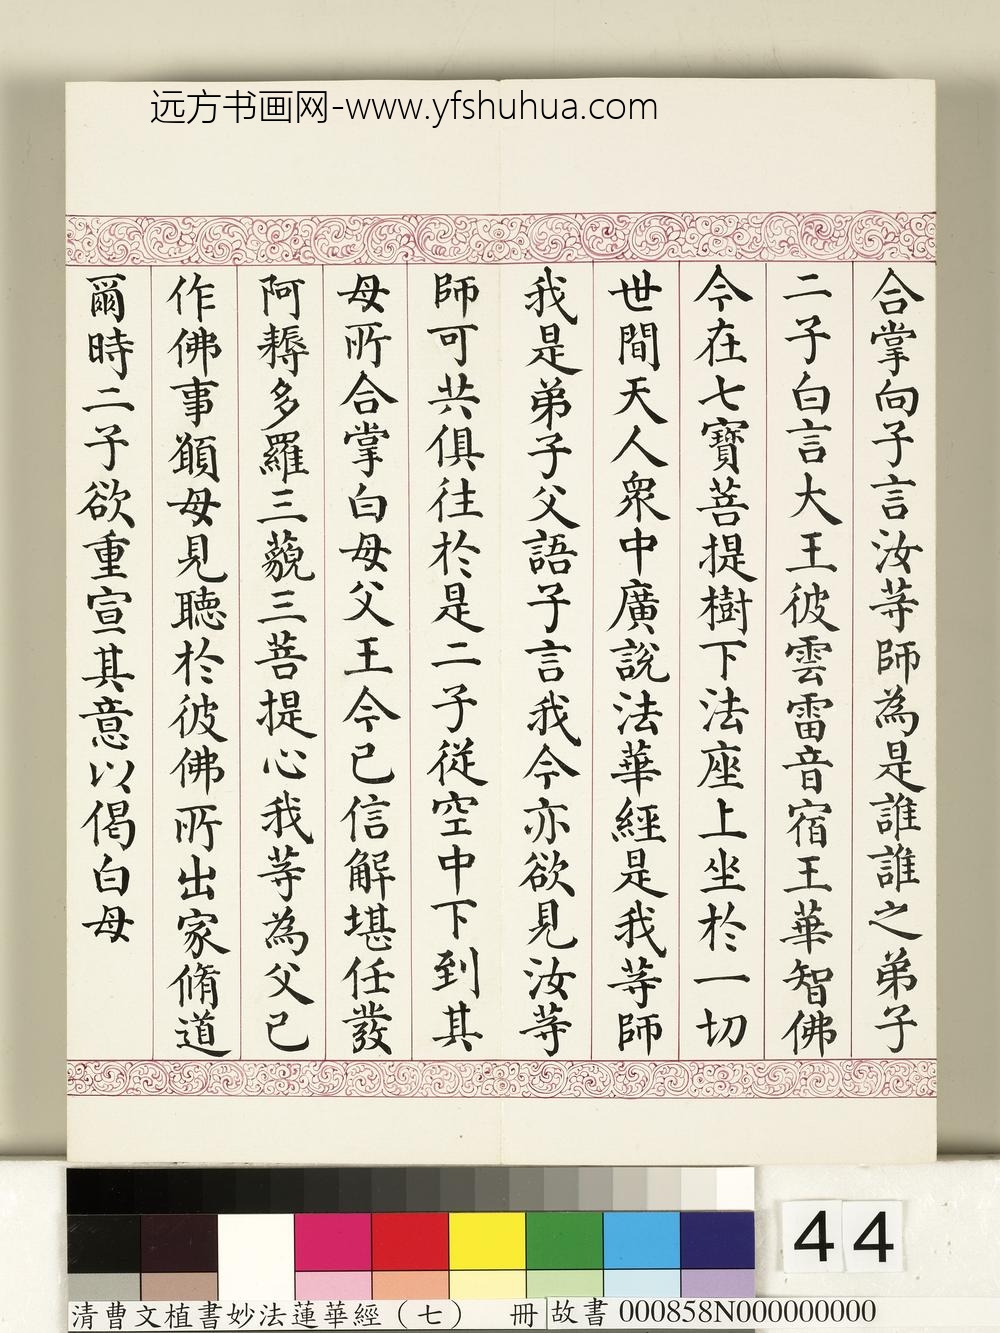 远方书画网-www.yfshuhua.com
合掌向子言汝等師為是誰誰之弟子
二子白言大王彼雲雷音宿王華智佛
今在七寶菩提樹下法座上坐於一切
世間天人衆中廣說法華經是我等師
我是弟子父語子言我今亦欲見汝等
師可共俱往於是二子從空中下到其
母所合掌白母父王今已信解堪任發
阿耨多羅三藐三菩提心我等為父已
作佛事願母見聽於彼佛所出家脩道
爾時二子欲重宣其意以偈白母
44
清曹文植書妙法蓮華經（七） 冊 故書 000858N000000000